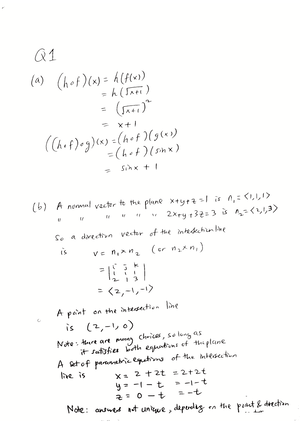 Q1
(a) (h∘f)(x) = h(f(x))
= h(√x+1)
= (√x+1)²
= x+1
((h∘f)∘g)(x) = (h∘f)(g(x))
= (h∘f)(sinx)
= sinx + 1
(b) A normal vector to the plane x+y+z=1 is n₁=<1,1,1>
" " " " " " 2x+y+3z=3 is n₂=<2,1,3>
So a direction vector of the intersection line
is v = n₁×n₂ (or n₂×n₁)
= | i j k |
| 1 1 1 |
| 2 1 3 |
= <2,-1,-1>
A point on the intersection line
is (2,-1,0)
Note: there are many choices, so long as
it satisfies both equations of the plane
A set of parametric equations of the intersection
line is x = 2 + 2t = 2+2t
y = -1 - t = -1-t
z = 0 - t = -t
Note: answer not unique, depending on the point & direction